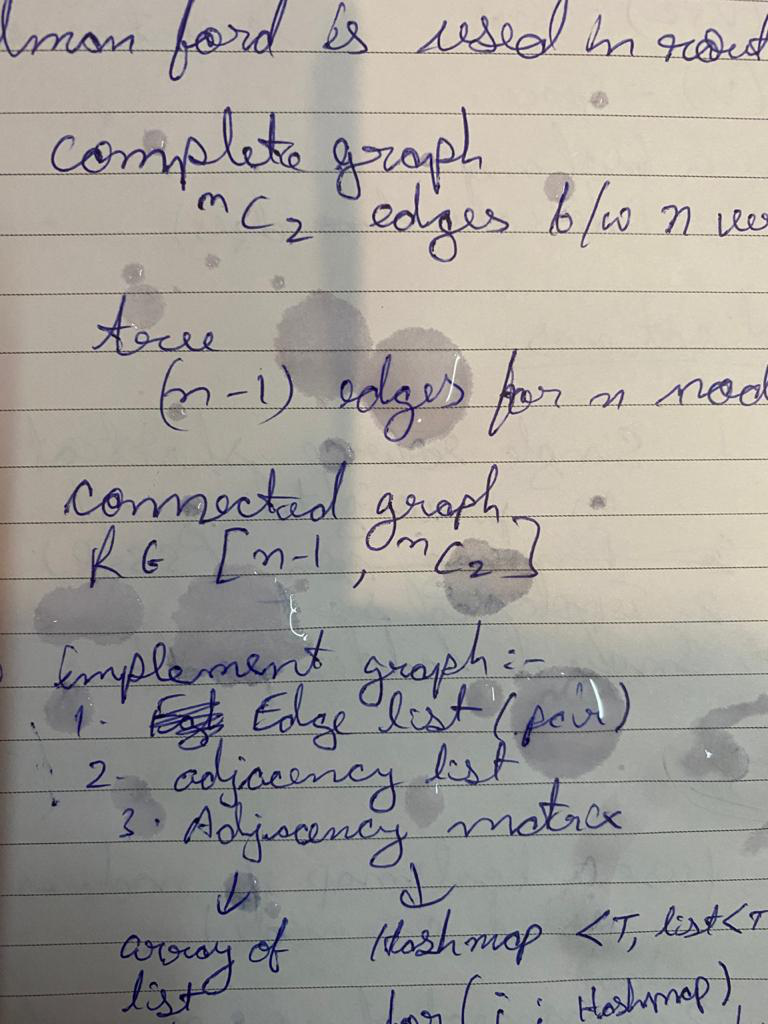 lman ford is used in rout
complete graph
ⁿC₂ edges b/w n ver
tree
(n-1) edges for n nod
connected graph
[n-1, ⁿC₂]
Implement graph:-
1. Edge list (pair)
2. adjacency list
3. Adjacency matrix
↓ ↓
array of Hashmap <T, list<T
list for (i : Hashmap)